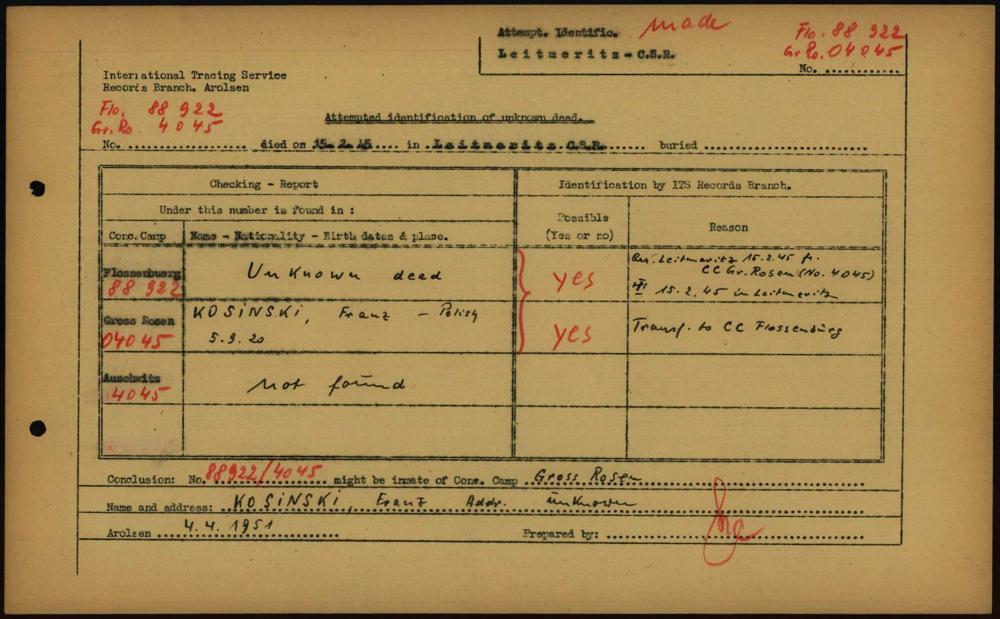 Attempt. Identific. made
Leitmeritz - C.S.R.
Flo. 88 922
Gr. Ro. 04045
No. ............
International Tracing Service
Records Branch, Arolsen
Flo. 88 922
Gr. Ro. 4045
Attempted identification of unknown dead.
No. .................. died on 15.2.45.... in .Leitmeritz C.S.R....... buried ..........................
Checking - Report
Identification by ITS Records Branch.
Under this number is found in :
Possible
(Yes or no)
Reason
Conc. Camp
Name - Nationality - Birth dates & place.
Flossenbuerg
88 922
Unknown dead
yes
Arr. Leitmeritz 15.2.45 fr.
CC Gr. Rosen (No. 4045)
15.2.45 in Leitmeritz
Gross Rosen
04045
KOSINSKI, Franz - Polish
5.9.20
yes
Transf. to CC Flossenbürg
Auschwitz
4045
not found
Conclusion: No. 88922/4045 might be inmate of Conc. Camp Gross Rosen
Name and address: KOSINSKI, Franz Addr. unknown
Arolsen 4.4.1951 Prepared by: